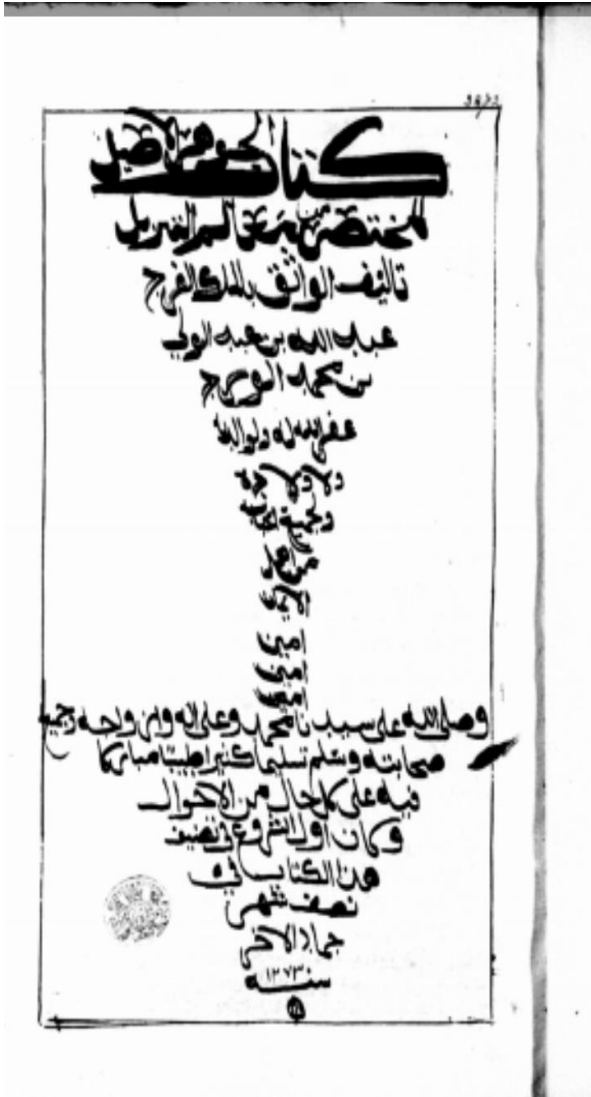 كتاب الجوهر الاصيل
المختصر من معالم التنزيل
تاليف الواثق بالملك الفرج
عبد الله بن عبد الولي
بن محمد المورج
غفر الله له ولوالديه
ولاولاده
وجميع
امين
امين
امين
وصلى الله على سيدنا محمد وعلى اله وازواجه وجميع
صحابته وسلم تسليما كثيرا طيبا مباركا
فيه على كل حال من الاحوال
وكان اول الشروع في تصنيف
هذا الكتاب في
نصف شهر
جماد الاخر
سنه ١٢٧٣